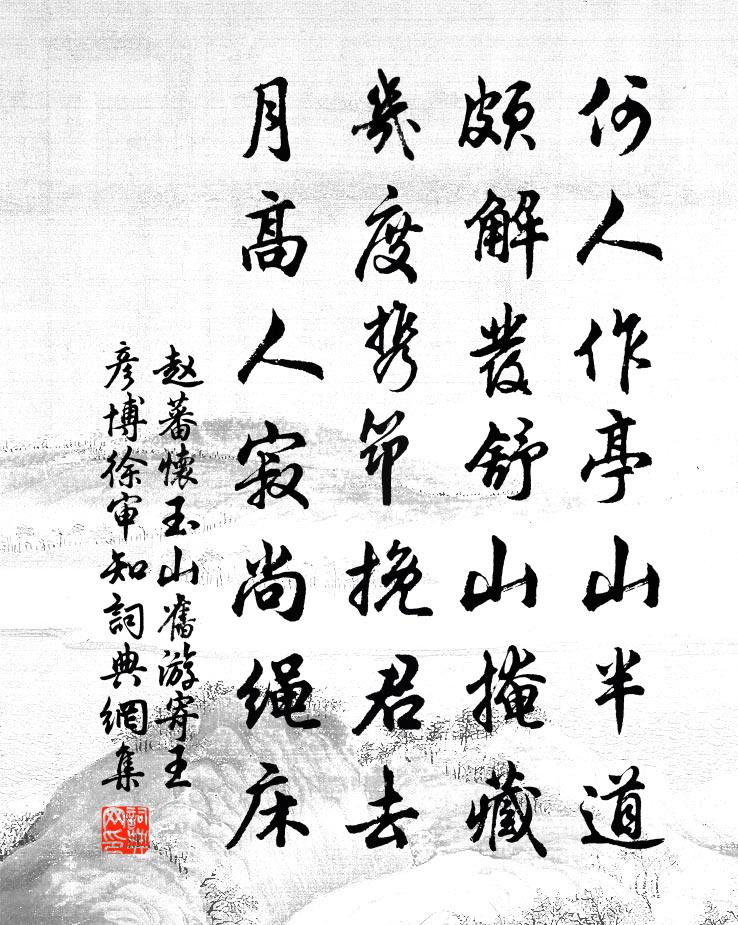 何人作亭山半道
頗解發舒山掩藏
幾度携筇挽君去
月高人寂尚绳床
赵蕃懷玉山舊游寄王
彦博徐审知詞典網集